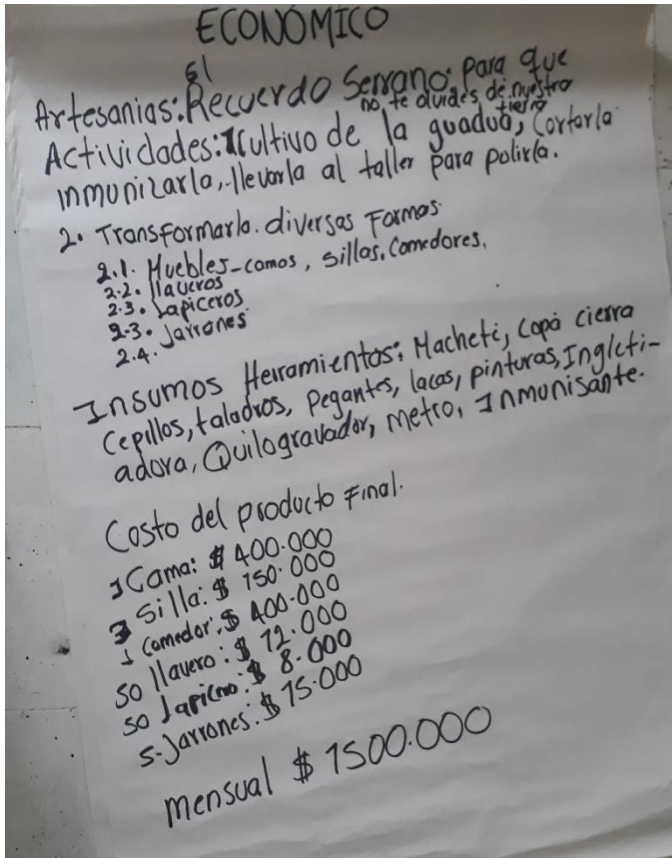 ECONÓMICO
Artesanias: El Recuerdo Serrano: Para que
no te olvides de nuestra tierra
Actividades: 1 Cultivo de la guadua, Cortarla
inmunizarla, llevarla al taller para polirla.
2. Transformarla. diversas Formas.
2.1. Muebles-camas, sillas, Comedores.
2.2. llaveros
2.3. Lapiceros
2.3. Jarrones
2.4.
Insumos Herramientas: Machete, Copa cierra
Cepillos, taladros, Pegantes, lacas, pinturas, Ingleti-
adora, Quilogravador, metro, Inmunisante.
Costo del producto Final.
1 Cama: $ 400.000
3 Silla: $ 150.000
1 Comedor: $ 400.000
50 llavero: $ 12.000
50 Lapicero: $ 8.000
5-Jarrones: $ 15.000
mensual $ 1500.000